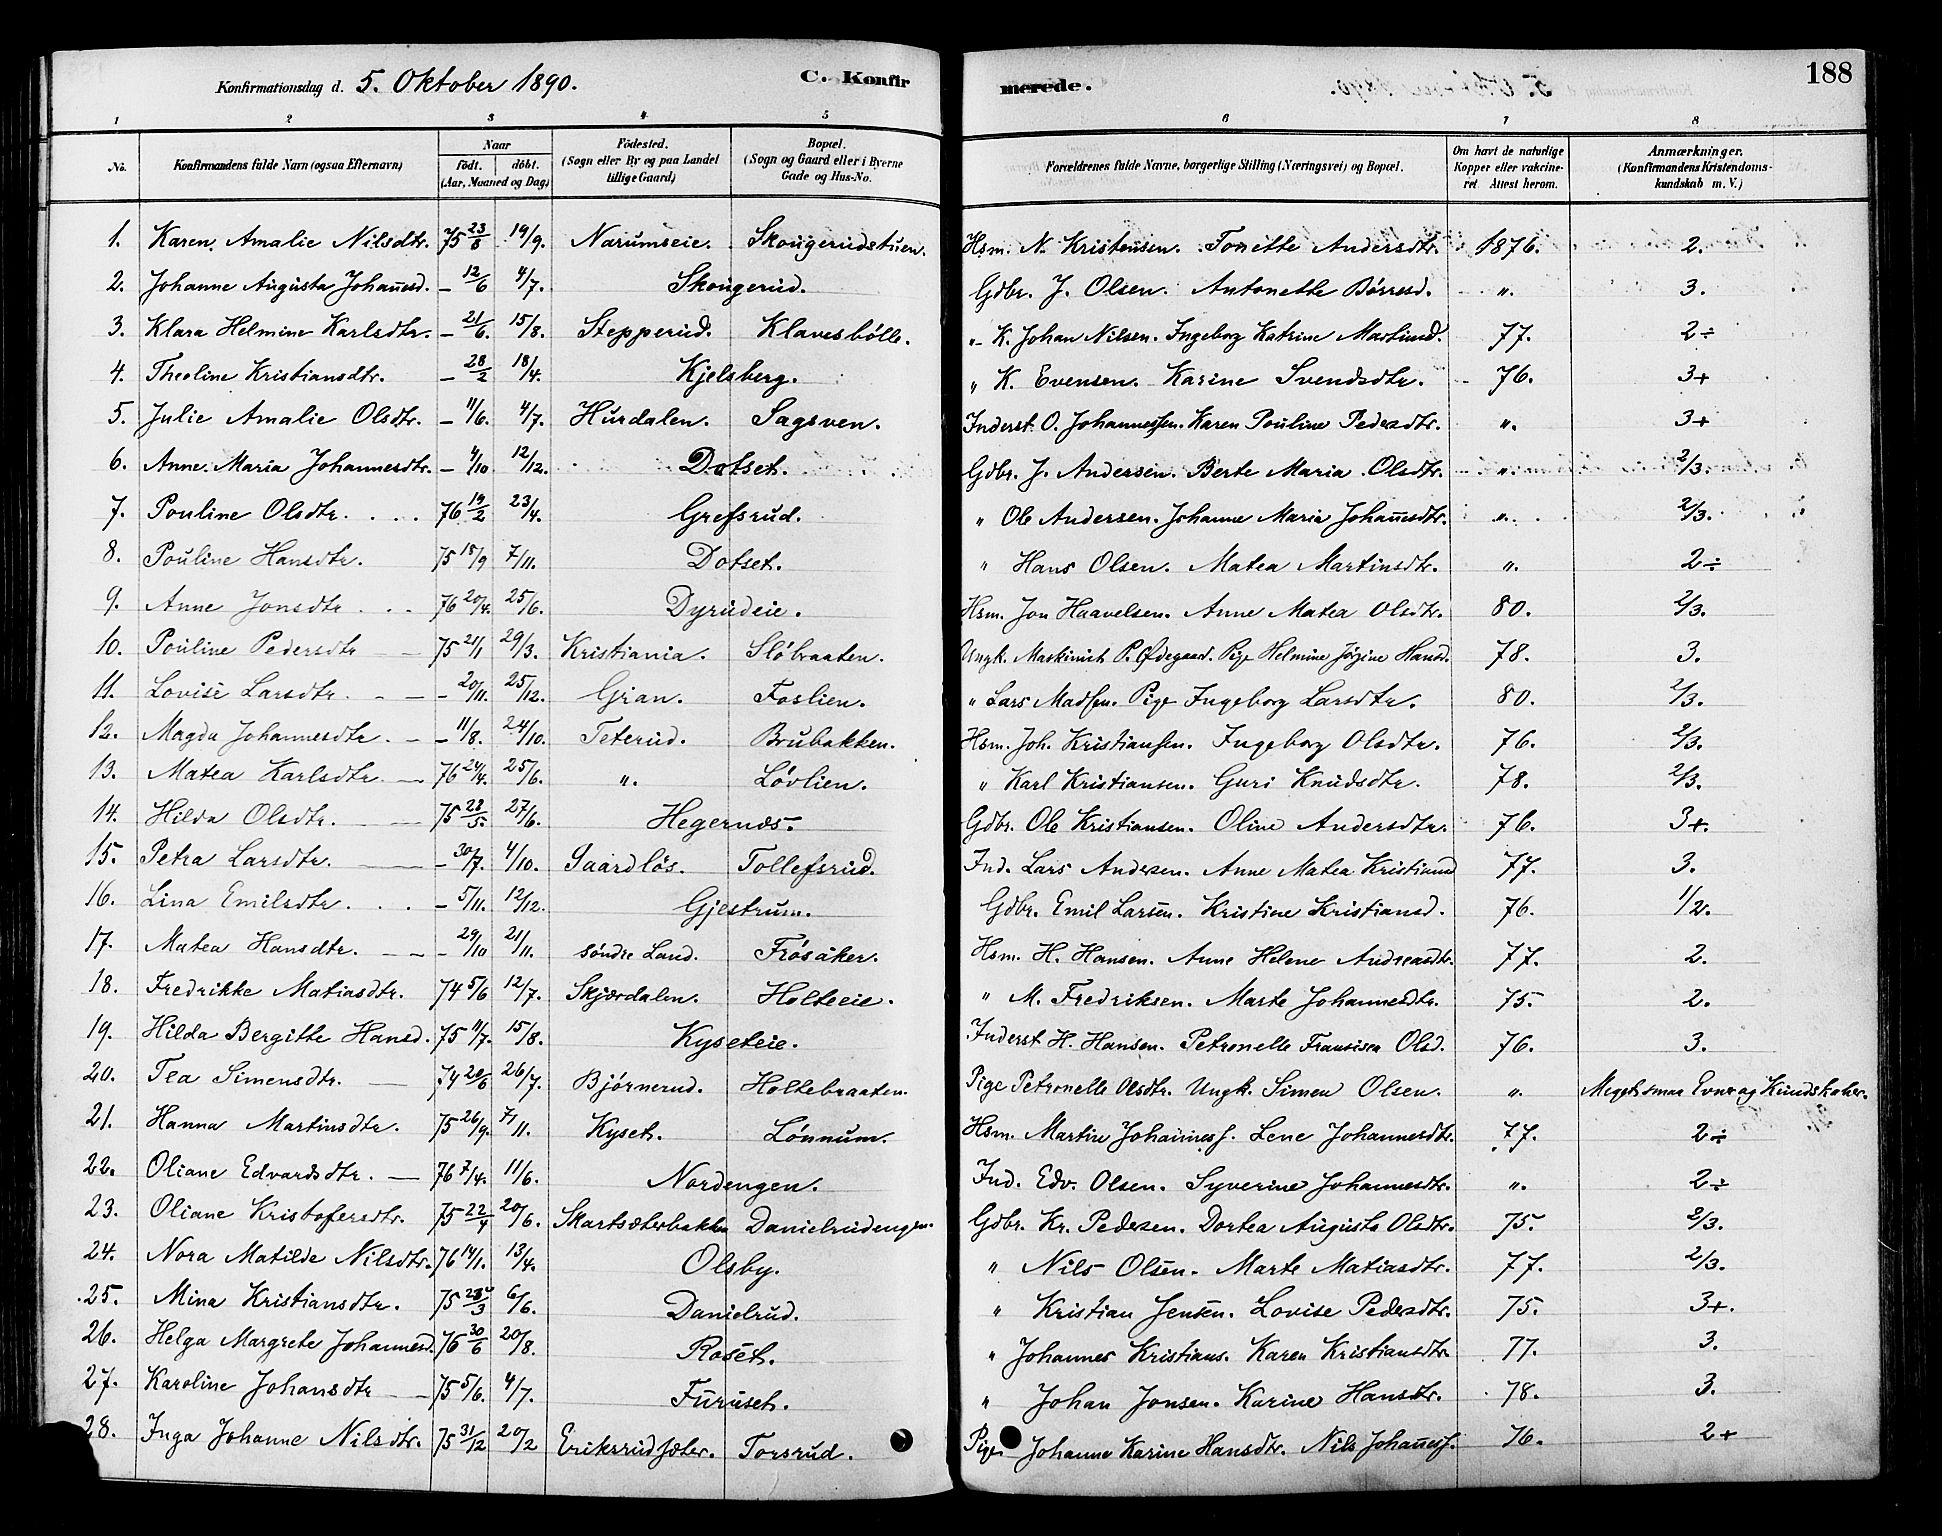 Konfirmationsdag d. 5. Oktober 1890. C. Konfirmerede. 188
1 2 3 4 5 6 7 8
No. Konfirmandens fulde Navn (ogsaa Efternavn) Naar födt. döbt. (Aar, Maaned og Dag) Födested. (Sogn eller By og paa Landet tillige Gaard) Bopæl. (Sogn og Gaard eller i Byerne Gade og Hus-No. Forældrenes fulde Navne, borgerlige Stilling (Næringsvei) og Bopæl. Om havt de naturlige Kopper eller vakcineret. Attest herom. Anmærkninger. (Konfirmandens Kristendomskundskab m. V.)
1. Karen Amalie Nilsdtr. 75 23/8 19/9. Narumseie. Skougerudstuen. Hsm. N. Kristensen. Tonette Andersdtr. 1876. 2.
2. Johanne Augusta Johannesd. – 12/6 4/7. Skougerud. Gdbr. J. Olsen. Antonette Börresd. ". 3.
3. Klara Helmine Karlsdtr. – 21/6. 15/8. Stepperud. Klavesbölle. " K. Johan Nilsen. Ingeborg Katrine Martinsd. 77. 2÷
4. Theoline Kristiansdtr. – 28/2 18/4. Kjelsberg. " K. Evensen. Karine Svendsdtr. 76. 3+
5. Julie Amalie Olsdtr. – 11/6. 4/7. Hurdalen. Sagsven. Inderst. O. Johannessen. Karen Pouline Pedersdtr. ". 3+
6. Anne Maria Johannesdtr. – 4/10 12/12. Dotset. Gdbr. J. Andersen. Berte Maria Olsdtr. ". 2/3.
7. Pouline Olsdtr. 76 19/2 23/4. Grefsrud. " Ole Andersen. Johanne Marie Johannesdtr. ". 2/3.
8. Pouline Hansdtr. 75 18/9 7/11. Dotset. " Hans Olsen. Matea Martinsdtr. ". 2÷
9. Anne Jonsdtr. 76 20/4. 25/6. Dyrudeie. Hsm. Jon Haavelsen. Anne Matea Olsdtr. 80. 2/3.
10. Pouline Pedersdtr 75 21/1 29/3. Kristiania. Slöbraaten. Ungk. Maskinist P. Ödegaard. Pige Helmine Jörgine Hansd. 78. 3.
11. Lovise Larsdtr. – 20/11. 25/12. Gran. Foslien. " Lars Madsen. Pige Ingeborg Larsdtr. 80. 2/3.
12. Magda Johannesdtr. – 11/8. 24/10. Teterud. Brubakken. Hsm. Joh. Kristiansen. Ingeborg Olsdtr. 76. 2/3.
13. Matea Karlsdtr. 76 24/4. 25/6. ". Lövlien. " Karl Kristiansen. Guri Knudsdtr. 78. 2/3.
14. Hilda Olsdtr. 75 28/5. 27/6. Hegernæs. Gdbr. Ole Kristiansen. Oline Andersdtr. 76. 3+.
15. Petra Larsdtr. – 30/7. 4/10. Gaardlös. Tollefsrud. Ind. Lars Andersen. Anne Matea Kristiansd 77. 3.
16. Lina Emilsdtr. – 5/11. 12/12. Gjestrum. Gdbr. Emil Larsen. Kristine Kristiansd. 76. 1/2.
17. Matea Hansdtr. – 29/10 21/11. söndre Land. Frösaker. Hsm. H. Hansen. Anne Helene Andreasdtr. 77. 2.
18. Fredrikke Matiasdtr. 74 5/6 12/7. Skjærdalen. Holteeie. " M. Fredriksen. Marte Johannesdtr. 75. 2.
19. Hilda Bergitte Hansd. 75 11/7. 15/8. Kyseteie. Inderst H. Hansen. Petronelle Fransisca Olsd. 76. 3.
20. Tea Simensdtr. 74 20/6 26/7. Björnerud. Holtebraaten. Pige Petronelle Olsdtr. Ungk. Simen Olsen. ". Meget smaa Evner og Kundskaber.
21. Hanna Martinsdtr. 75 26/9. 7/11. Kyset. Lönnum. Hsm. Martin Johanness. Lene Johannesdtr. 77. 2÷
22. Oliane Edvardsdtr. 76 7/4. 11/6. Nordengen. Ind. Edv. Olsen. Syverine Johannesdtr. ". 2÷
23. Oliane Kristofersdtr. 75 22/4 20/6. Skartsæterbakken Danielrudengen. Gdbr. Kr. Pedersen. Dortea Augusta Olsdtr. 75. 2/3.
24. Nora Matilde Nilsdtr. 76 14/1. 13/4. Olsby. " Nils Olsen. Marte Matiasdtr. 77. 2/3.
25. Mina Kristiansdtr. 75 28/3 6/6. Danielrud. " Kristian Jensen. Lovise Pedersdtr. 75. 3+.
26. Helga Margrete Johannesd. 76 30/6 20/8. Roset. " Johannes Kristians. Karen Kristiansdtr. 77. 3.
27. Karoline Johansdtr 75 5/6. 4/7. Furuset. " Johan Jonsen. Karine Hansdtr. 78. 3.
28. Inga Johanne Nilsdtr. 75 31/12 20/2 Eriksrudsæter. Torsrud. Pige Johanne Karine Hansdtr. Nils Johanness. 76. 2+